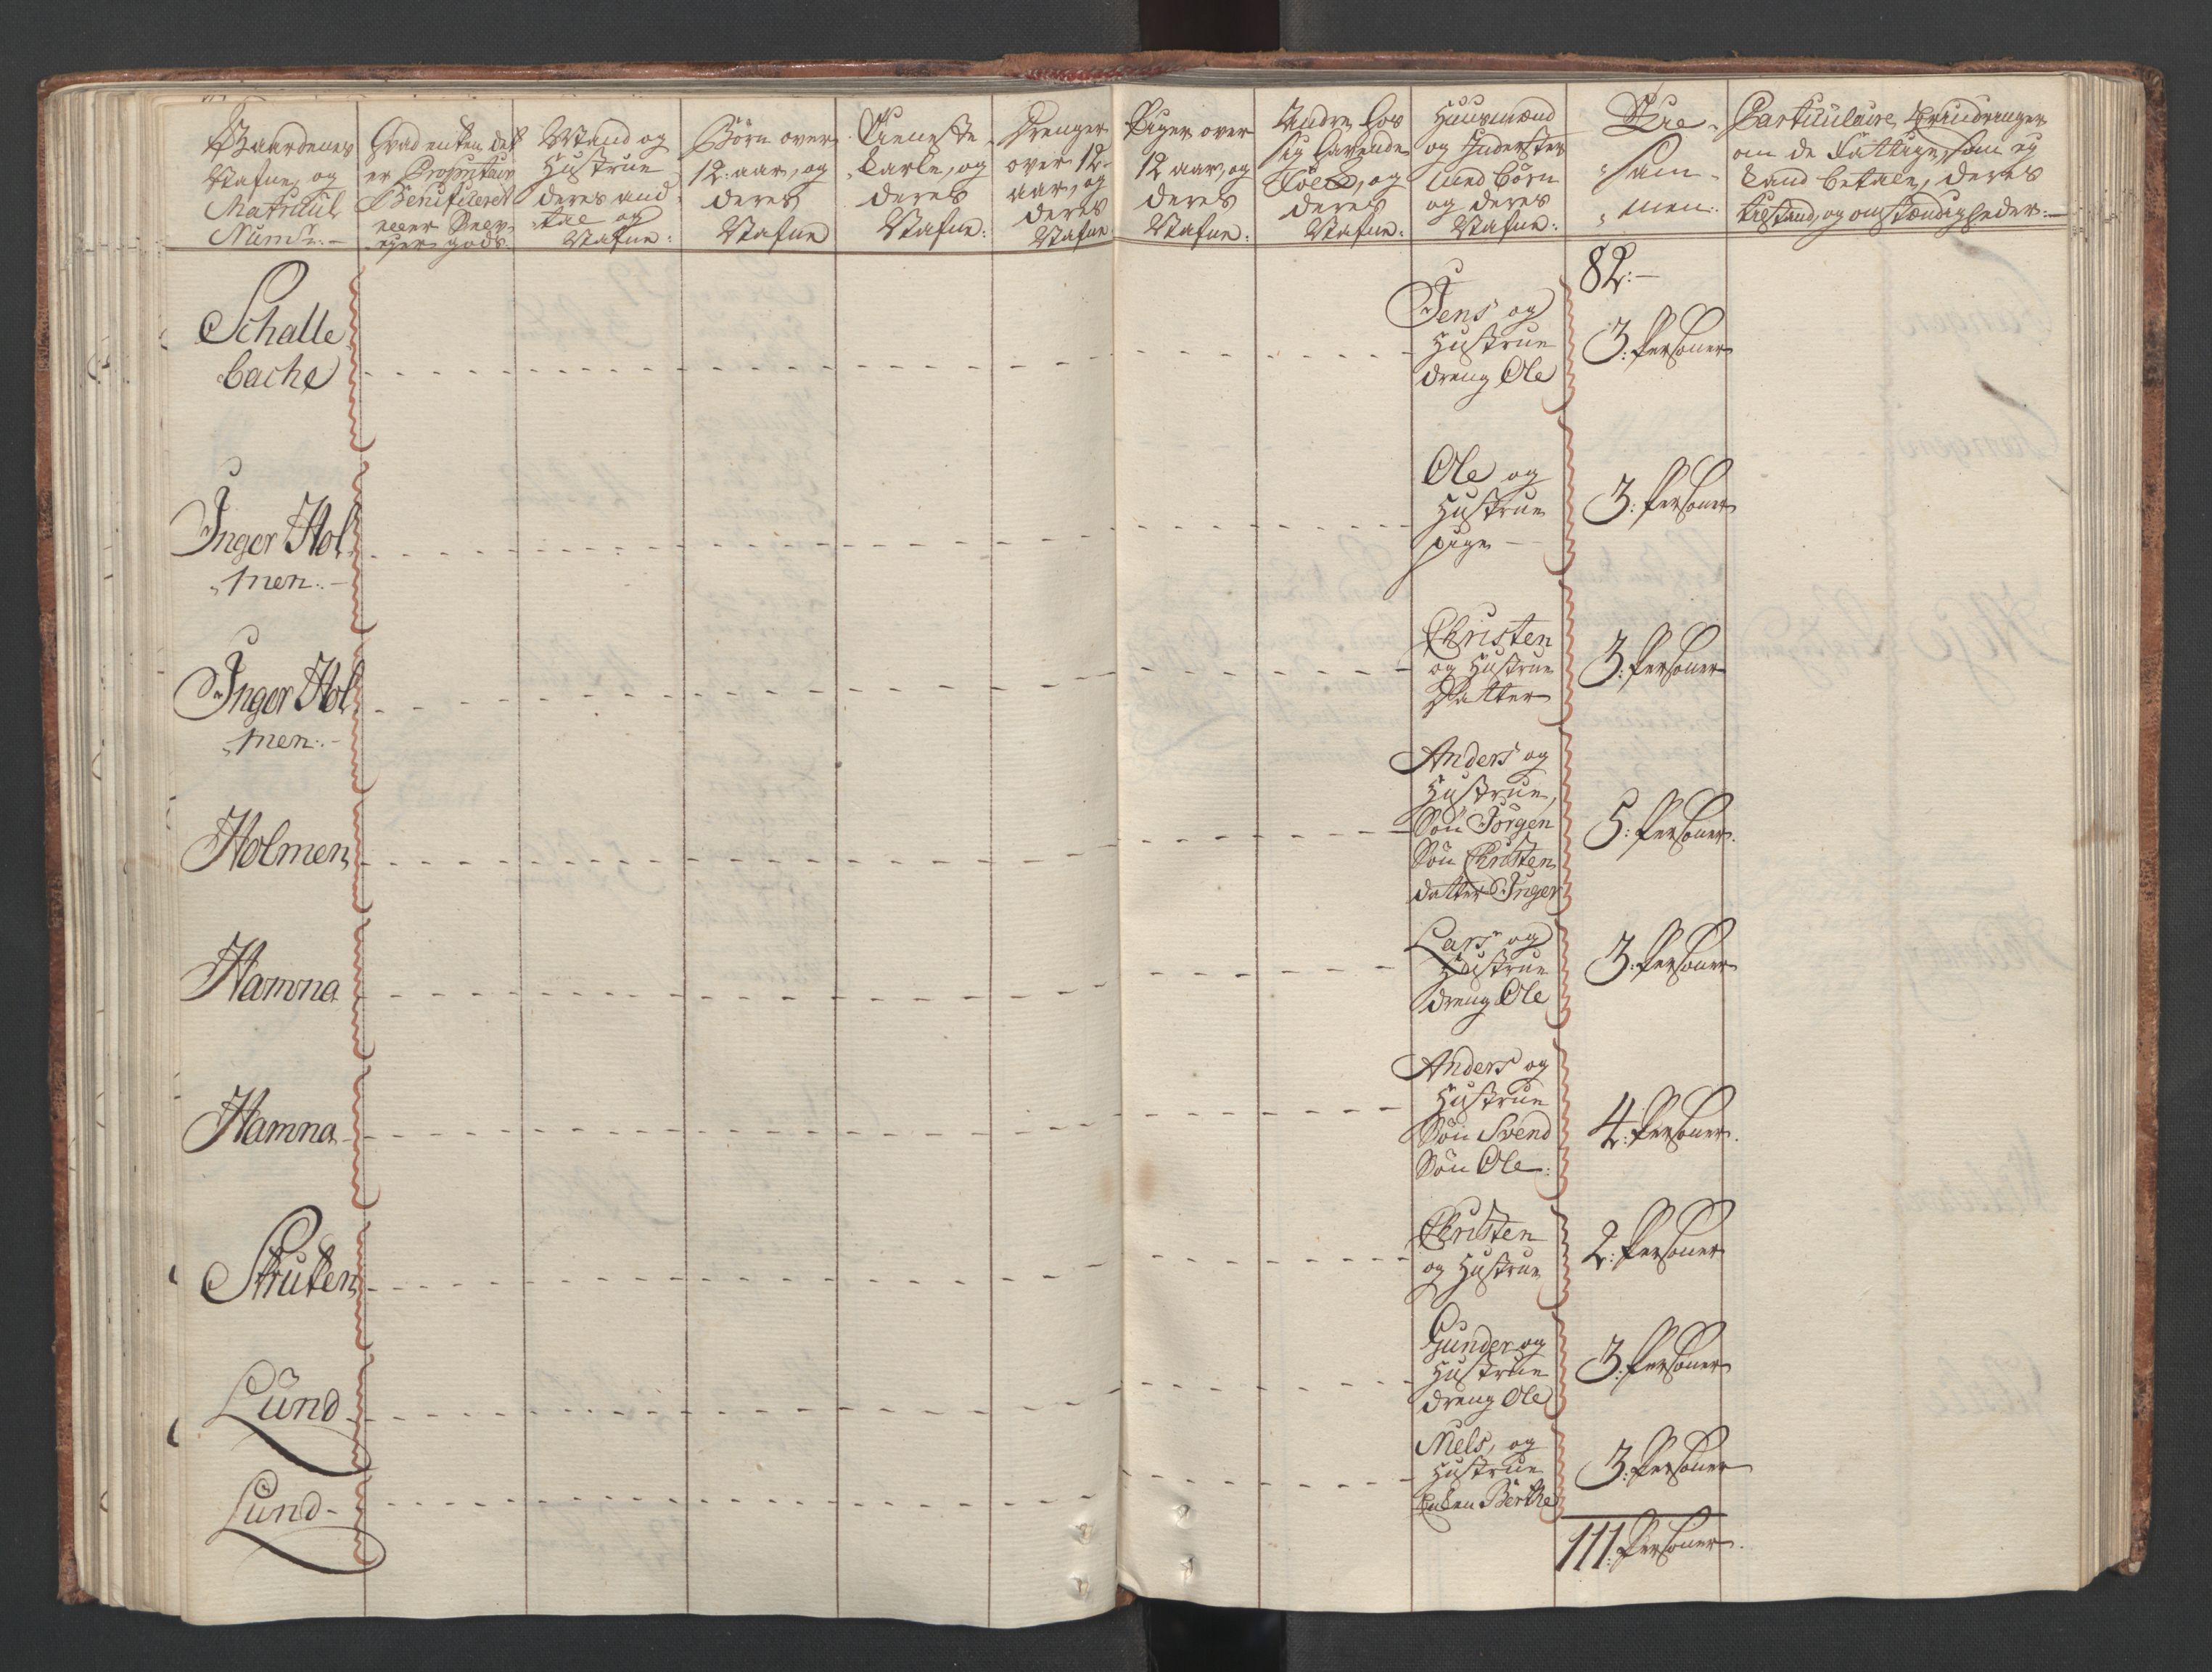 Gaardenes
Nafne, og
Matricul
Num:
Hvad enten det
er Proprietair
Beneficeret
eller Selv-
eyer gods.
Mand og
Hustrue
deres and-
tal og
Nafne:
Börn over
12. aar, og
deres
Nafne
Tieneste-
karle, og
deres
Nafne:
Drenger
over 12.
aar, og
deres
Nafne
Piger over
12 aar, og
deres
Nafne:
Andre hos
sig havende
Folck, og
deres
Nafne:
Huusmænd
og Inderster
med börn
og deres
Nafne:
Til-
sam-
men:
Particulaire Erindringer
om de Fattige, som ey
kand betale, deres
tilstand, og omstændigheder:
82:
Schalle
bache
Jens og
Hustrue
dreng Ole
3: Personer
Inger Hol
men:
Ole og
Hustrue
pige
3: Personer
Inger Hol
men:
Christen
og Hustrue
Datter
3: Personer
Holmen
Anders og
Hustrue,
Sön Jörgen
Sön Christen
datter Inger
5: Personer.
Hamna
Lars og
Hustrue
dreng Ole
3: Personer
Hamna
Anders og
Hustrue
Sön Svend
Sön Ole:
4: Personer.
Struten
Christen
og Hustrue
2: Personer
Lund
Gunder og
Hustrue
dreng Ole
3: Personer
Lund
Niels, og
Hustrue
Enken Berthe
3: Personer
111: Personer.